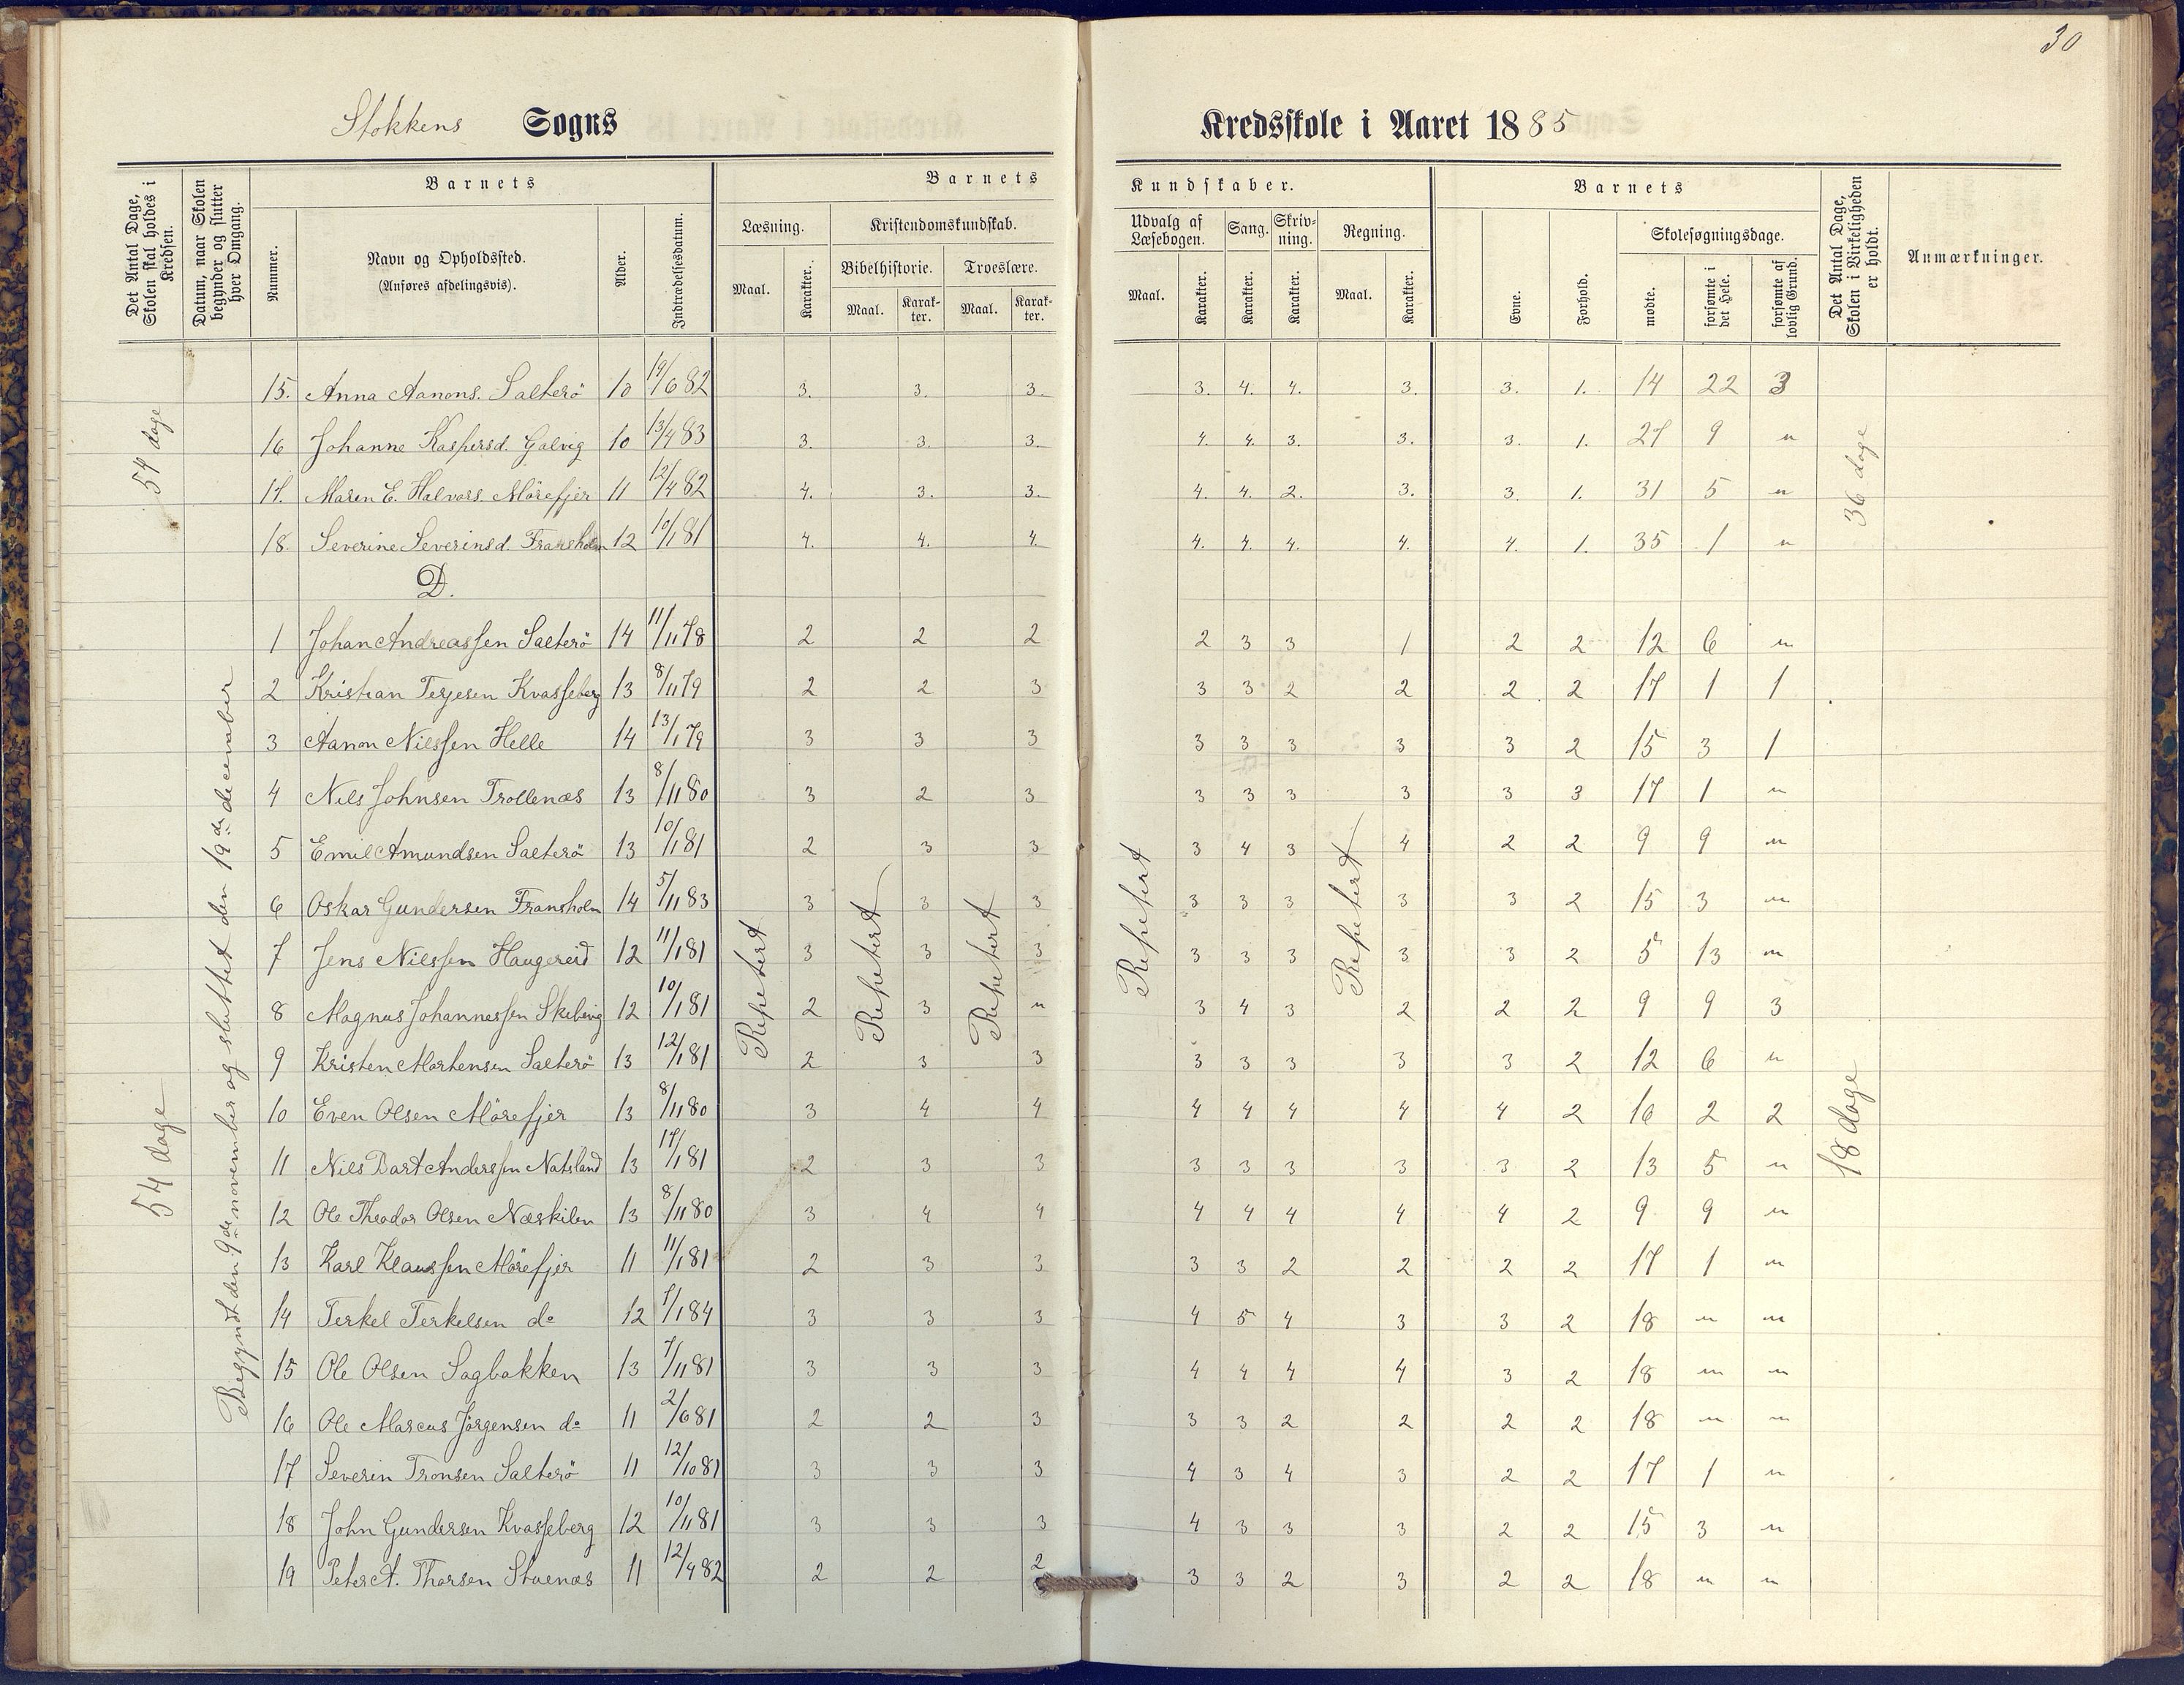 30
Stokkens Sogns Kredsskole i Aaret 1885
Det Antal Dage, Skolen skal holdes i Kredsen.
Datum, naar Skolen begynder og slutter hver Omgang.
Barnets
Nummer.
Navn og Opholdssted.
(Anføres afdelingsvis).
Alder.
Indtrædelsesdatum.
Barnets Kundskaber.
Læsning. Kristendomskundskab. Udvalg af Læsebogen. Sang. Skrivning. Regning.
Bibelhistorie. Troeslære.
Maal. Karakter. Maal. Karakter. Maal. Karakter. Maal. Karakter. Karakter. Karakter. Maal. Karakter.
Barnets
Evne. Forhold. Skolesøgningsdage.
mødte. forsømte i det Hele. forsømte af lovlig Grund.
Det Antal Dage, Skolen i Virkeligheden er holdt.
Anmærkninger.
54 dage
36 dage
15. Anna Aanons. Salterö 10 14/6 82 3. 3. 3. 3. 4. 4. 3. 3. 1. 14 22 3
16 Johanne Kaspersd. Galvig 10 13/4 83 3. 3. 3. 4. 4. 3. 3. 3. 1. 27 9 "
17. Maren E. Halvors. Mörefjer 11 12/4 82 4. 3. 3. 4. 4. 2. 3. 3. 1. 31 5 "
18. Severine Severinsd. Fransholm 12 10/1 81 4. 4. 4. 4. 4. 4. 4. 4. 1. 35 1 "
D.
54 dage
Begyndt den 9de november og sluttet den 19de december
Repetert Repetert Repetert Repetert Repetert
18 dage
1 Johan Andreassen Salterö 14 11/11 78 2 2 2 2 3 3 1 2 2 12 6 "
2 Kristian Terjesen Kvasseberg 13 8/11 79 2 2 3 3 3 2 2 2 2 17 1 1
3 Aanon Nilssen Helle 14 13/1 79 3 3 3 3 3 3 3 3 2 15 3 1
4 Nils Johnsen Trollenæs 13 8/11 80 3 2 3 3 3 3 3 3 3 17 1 "
5 Emil Amundsen Salterö 13 10/1 81 2 3 3 3 4 3 4 2 2 9 9 "
6 Oskar Gundersen Fransholm 14 5/11 83 3 3 3 3 3 3 3 3 2 15 3 "
7 Jens Nilssen Haugereid 12 11/1 81 3 3 3 3 3 3 3 3 2 5 13 "
8 Magnus Johannessen Skibvig 12 10/1 81 2 3 " 3 4 3 2 2 2 9 9 3
9 Kristen Mortensen Salterö 13 12/1 81 2 3 3 3 3 3 3 3 2 12 6 "
10 Even Olsen Mörefjer 13 8/11 80 3 4 4 4 4 4 4 4 2 16 2 2
11 Nils Bart Anderssen Natsland 13 17/1 81 2 3 3 3 3 3 3 3 2 13 5 "
12 Ole Theodor Olsen Næskilen 13 8/11 80 3 4 4 4 4 4 4 4 2 9 9 "
13 Karl Klaussen Mörefjer 11 11/1 81 2 3 3 3 3 2 2 2 2 17 1 "
14 Terkel Terkelsen do 12 7/1 84 3 3 3 4 5 4 3 3 2 18 " "
15 Ole Olsen Sagbakken 13 7/11 81 3 3 3 4 4 4 4 3 2 18 " "
16 Ole Marcus Jörgensen do 11 2/6 81 2 2 3 3 3 2 2 2 2 18 " "
17 Severin Tronsen Salterö 11 12/10 81 3 3 3 4 3 4 3 2 2 17 1 "
18 John Gundersen Kvasseberg 12 10/11 81 3 3 3 4 3 3 3 2 2 15 3 "
19 Peter A. Thorsen Stuenæs 11 12/4 82 2 2 2 3 3 2 3 2 2 18 " "